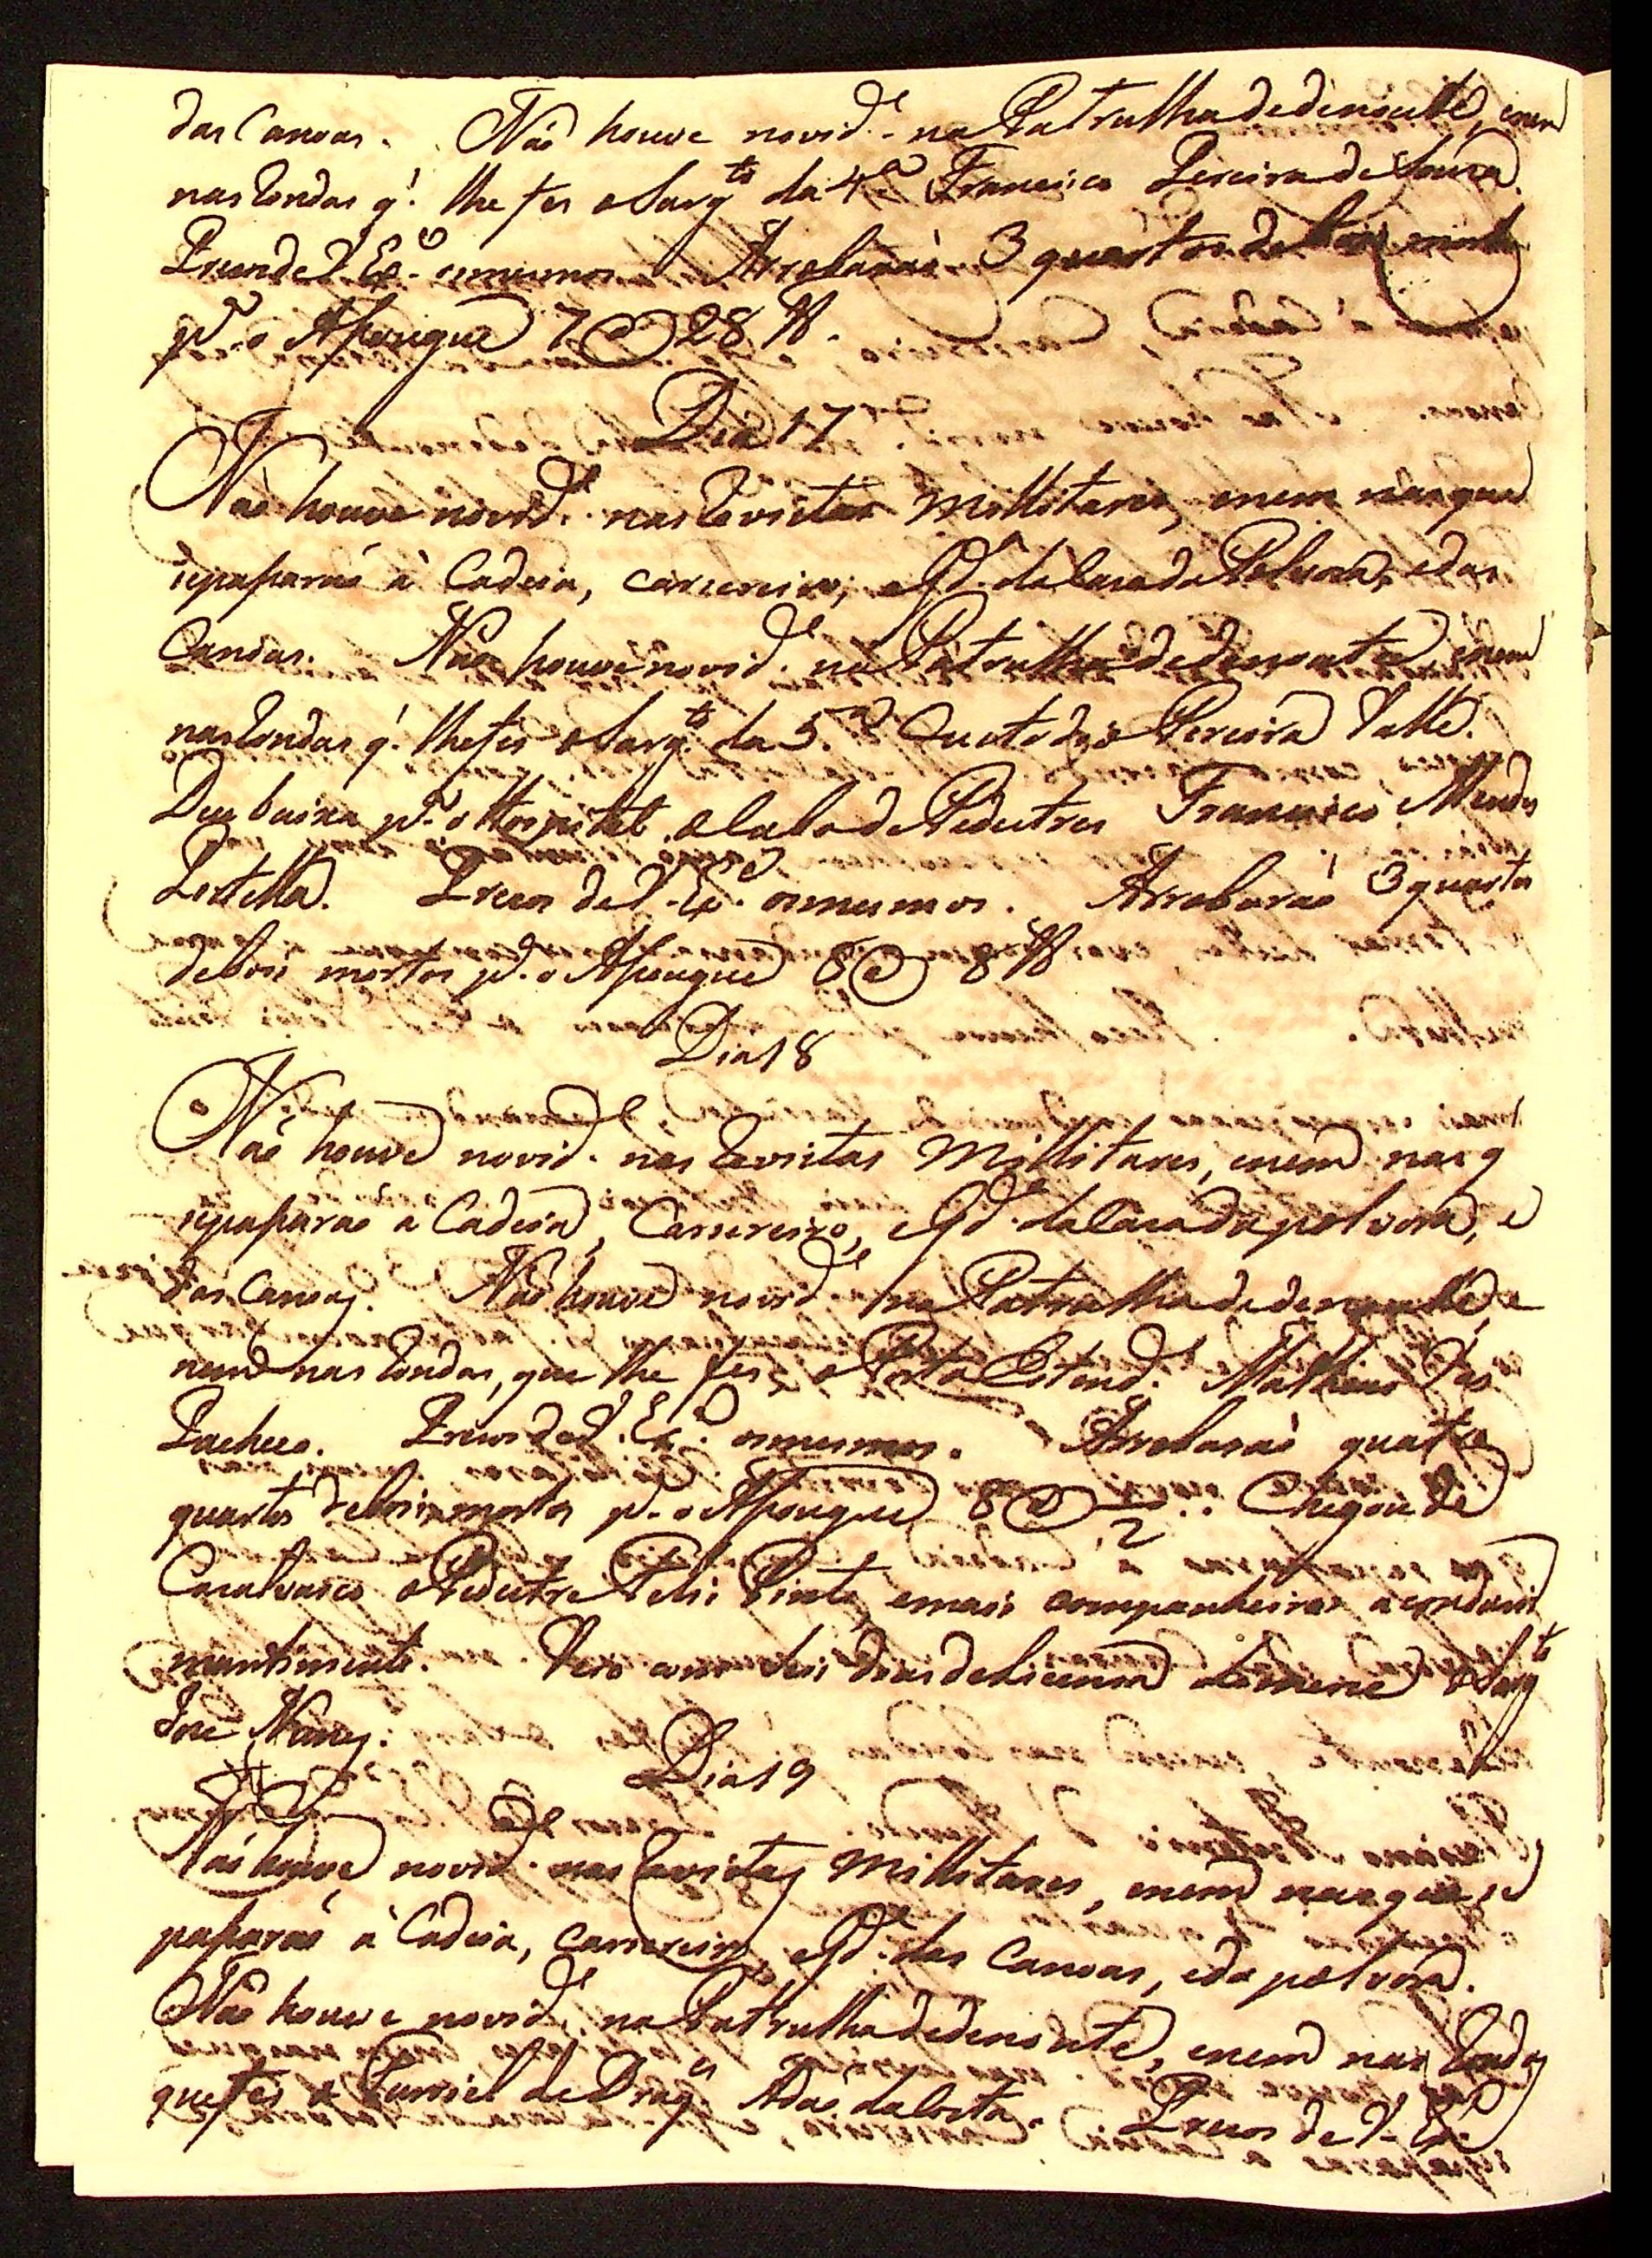 das Canoas. Não houve novid.e na Patrulha de denoute, enem
nas Rondas q.' lhe fes o Sarg.to da 4.a Francisco Pereira de Souza.
Prezos de V. Ex.a os mesmos. Arrobarão 3 quartos de boi morto
p.a o Asougue 7 @ 28 lb.
Dia 17
Não houve novid.e nas Revistas Millitares, enem nas que
sepasarão á Cadeia, carcereiro, e G.da da Casa da Polvora, e das
Canoas. Não houve novid.e na Patrulha de denoute, enem
nas Rondas q.' lhe fes o Sarg.to da 5.a Custodio Pereira Valle.
Deu baixa p.a o Hospital o Cabo de Pedestres Francisco Mendes
Portella. Prezos de V. Ex.a os mesmos. Arrobarão 3 quartos
de bois mortos p.a o Asougue 8 @ 8 lb
Dia 18
Não houve novid.e nas Revistas Millitares, enem nas q
sepasarão a Cadeia, Carsereiro, e G.da da Casa da polvora, e
das Canoas. Não houve novid.e na Patrulha de denoute, e
nem nas Rondas, que lhe fes o Porta Estend.e Matheus Vas
Pacheco. Prezos de V. Ex.a os mesmos. Arrobarão quatro
quartos de bois mortos p.a o Asougue 8 @ ½. Chegou de
Casalvasco o Pedestre Felis Pinto, emais companheiros a condusir
mantimento. Veio com dois dias de licensa o Sarg.to
Joze Nunes.
Dia 19
Não houve novid.e nas Revistas Millitares, enem nas que se
pasarão á Cadeia, carsereiro, e G.da das Canoas, e da polvora.
Não houve novid.e na Patrulha de denoute, enem nas Rondas
que fes o Furriel de Drag.es Adão da Costa. Prezos de V. Ex.a